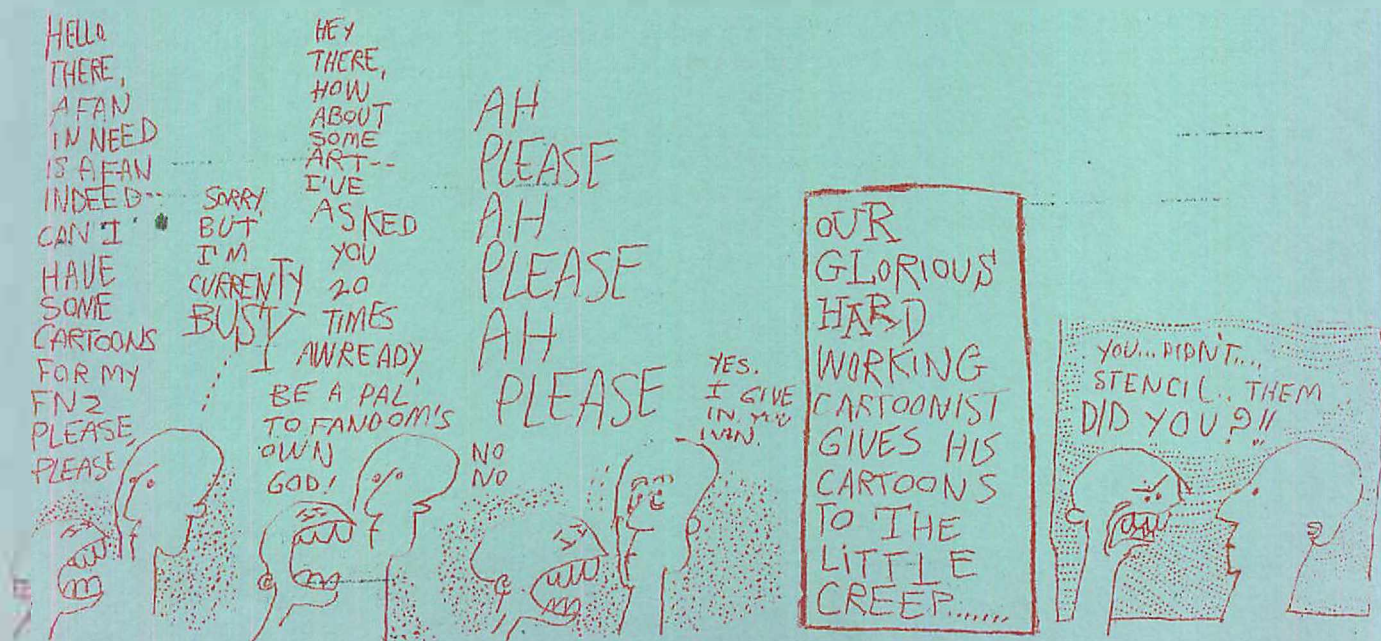 HELLO
THERE,
A FAN
IN NEED
IS A FAN
INDEED--
CAN I
HAVE
SOME
CARTOONS
FOR MY
FNZ
PLEASE,
PLEASE
SORRY,
BUT
I'M
CURRENTY
BUSY
HEY
THERE,
HOW
ABOUT
SOME
ART--
I'VE
ASKED
YOU
20
TIMES
AWREADY,
BE A PAL
TO FANDOM'S
OWN
GOD!
AH
PLEASE
AH
PLEASE
AH
PLEASE
NO
NO
YES.
I GIVE
IN. YOU
WIN.
OUR
GLORIOUS
HARD
WORKING
CARTOONIST
GIVES HIS
CARTOONS
TO THE
LITTLE
CREEP......
YOU...DIDN'T...
STENCIL.. THEM
DID YOU?!!